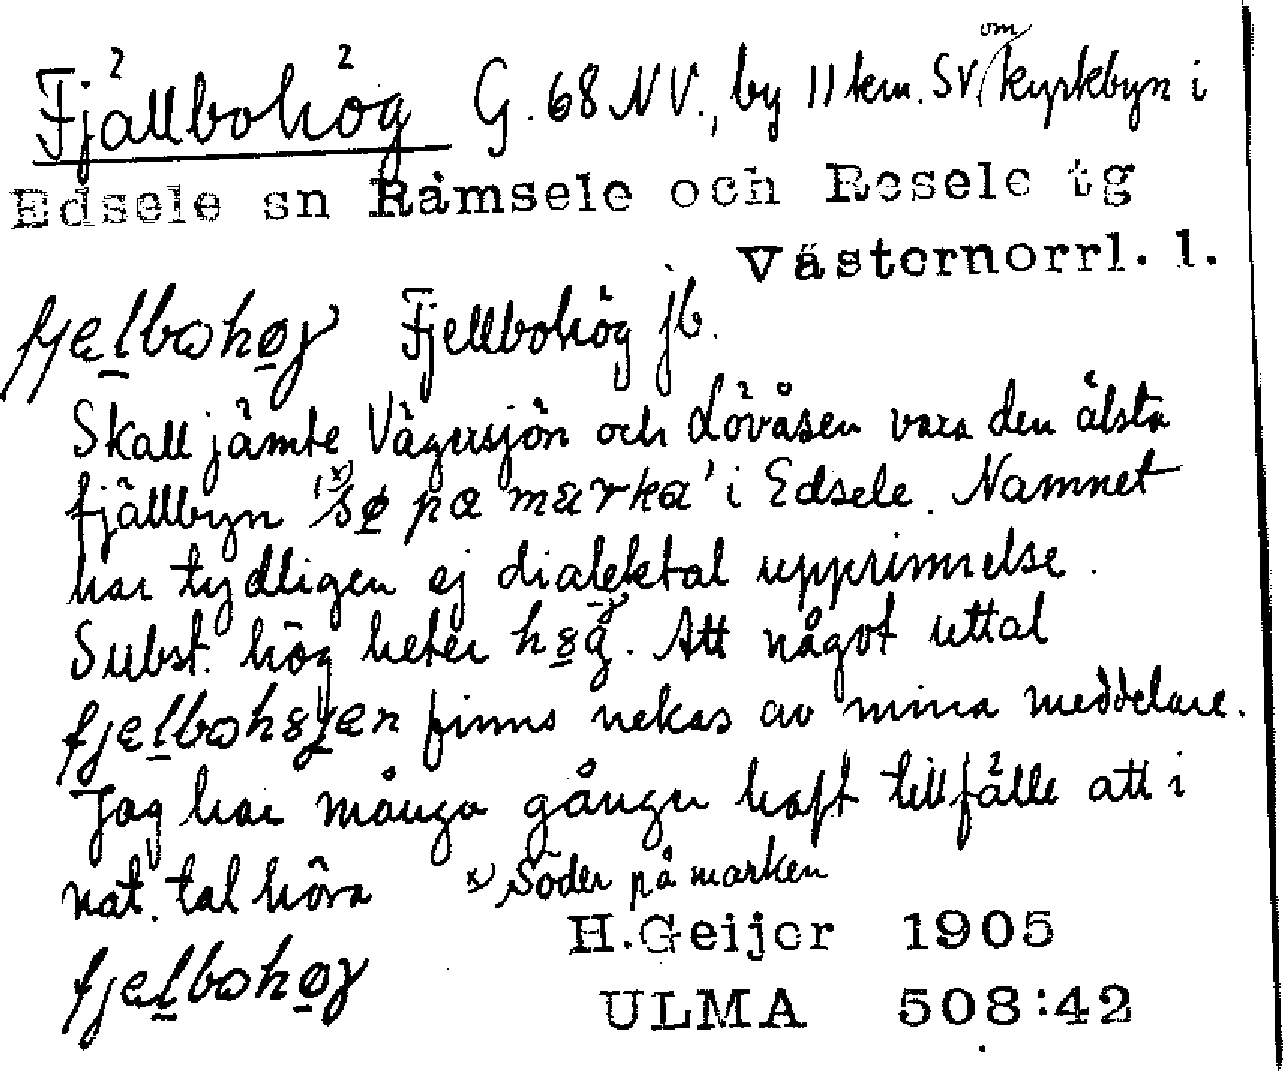 Fjällbohög G. 68 NV., by 11 km. SV om kyrkbyn i
Edsele sn Ramsele och Resele tg
Västernorrl. l.
fjelbohøg Fjellbohög jb.
Skall jämte Vägersjön och Lövåsen vara den älsta
fjällbyn 'x) sø pa marka' i Edsele. Namnet
har tydligen ej dialektal upprinnelse.
Subst. hög heter
Att något uttal
finns nekas av mina meddelare.
Jag har många gånger haft tillfälle att i
nat. tal höra x) Söder på marken
H.Geijer 1905
fjelbohøg
ULMA 508:42